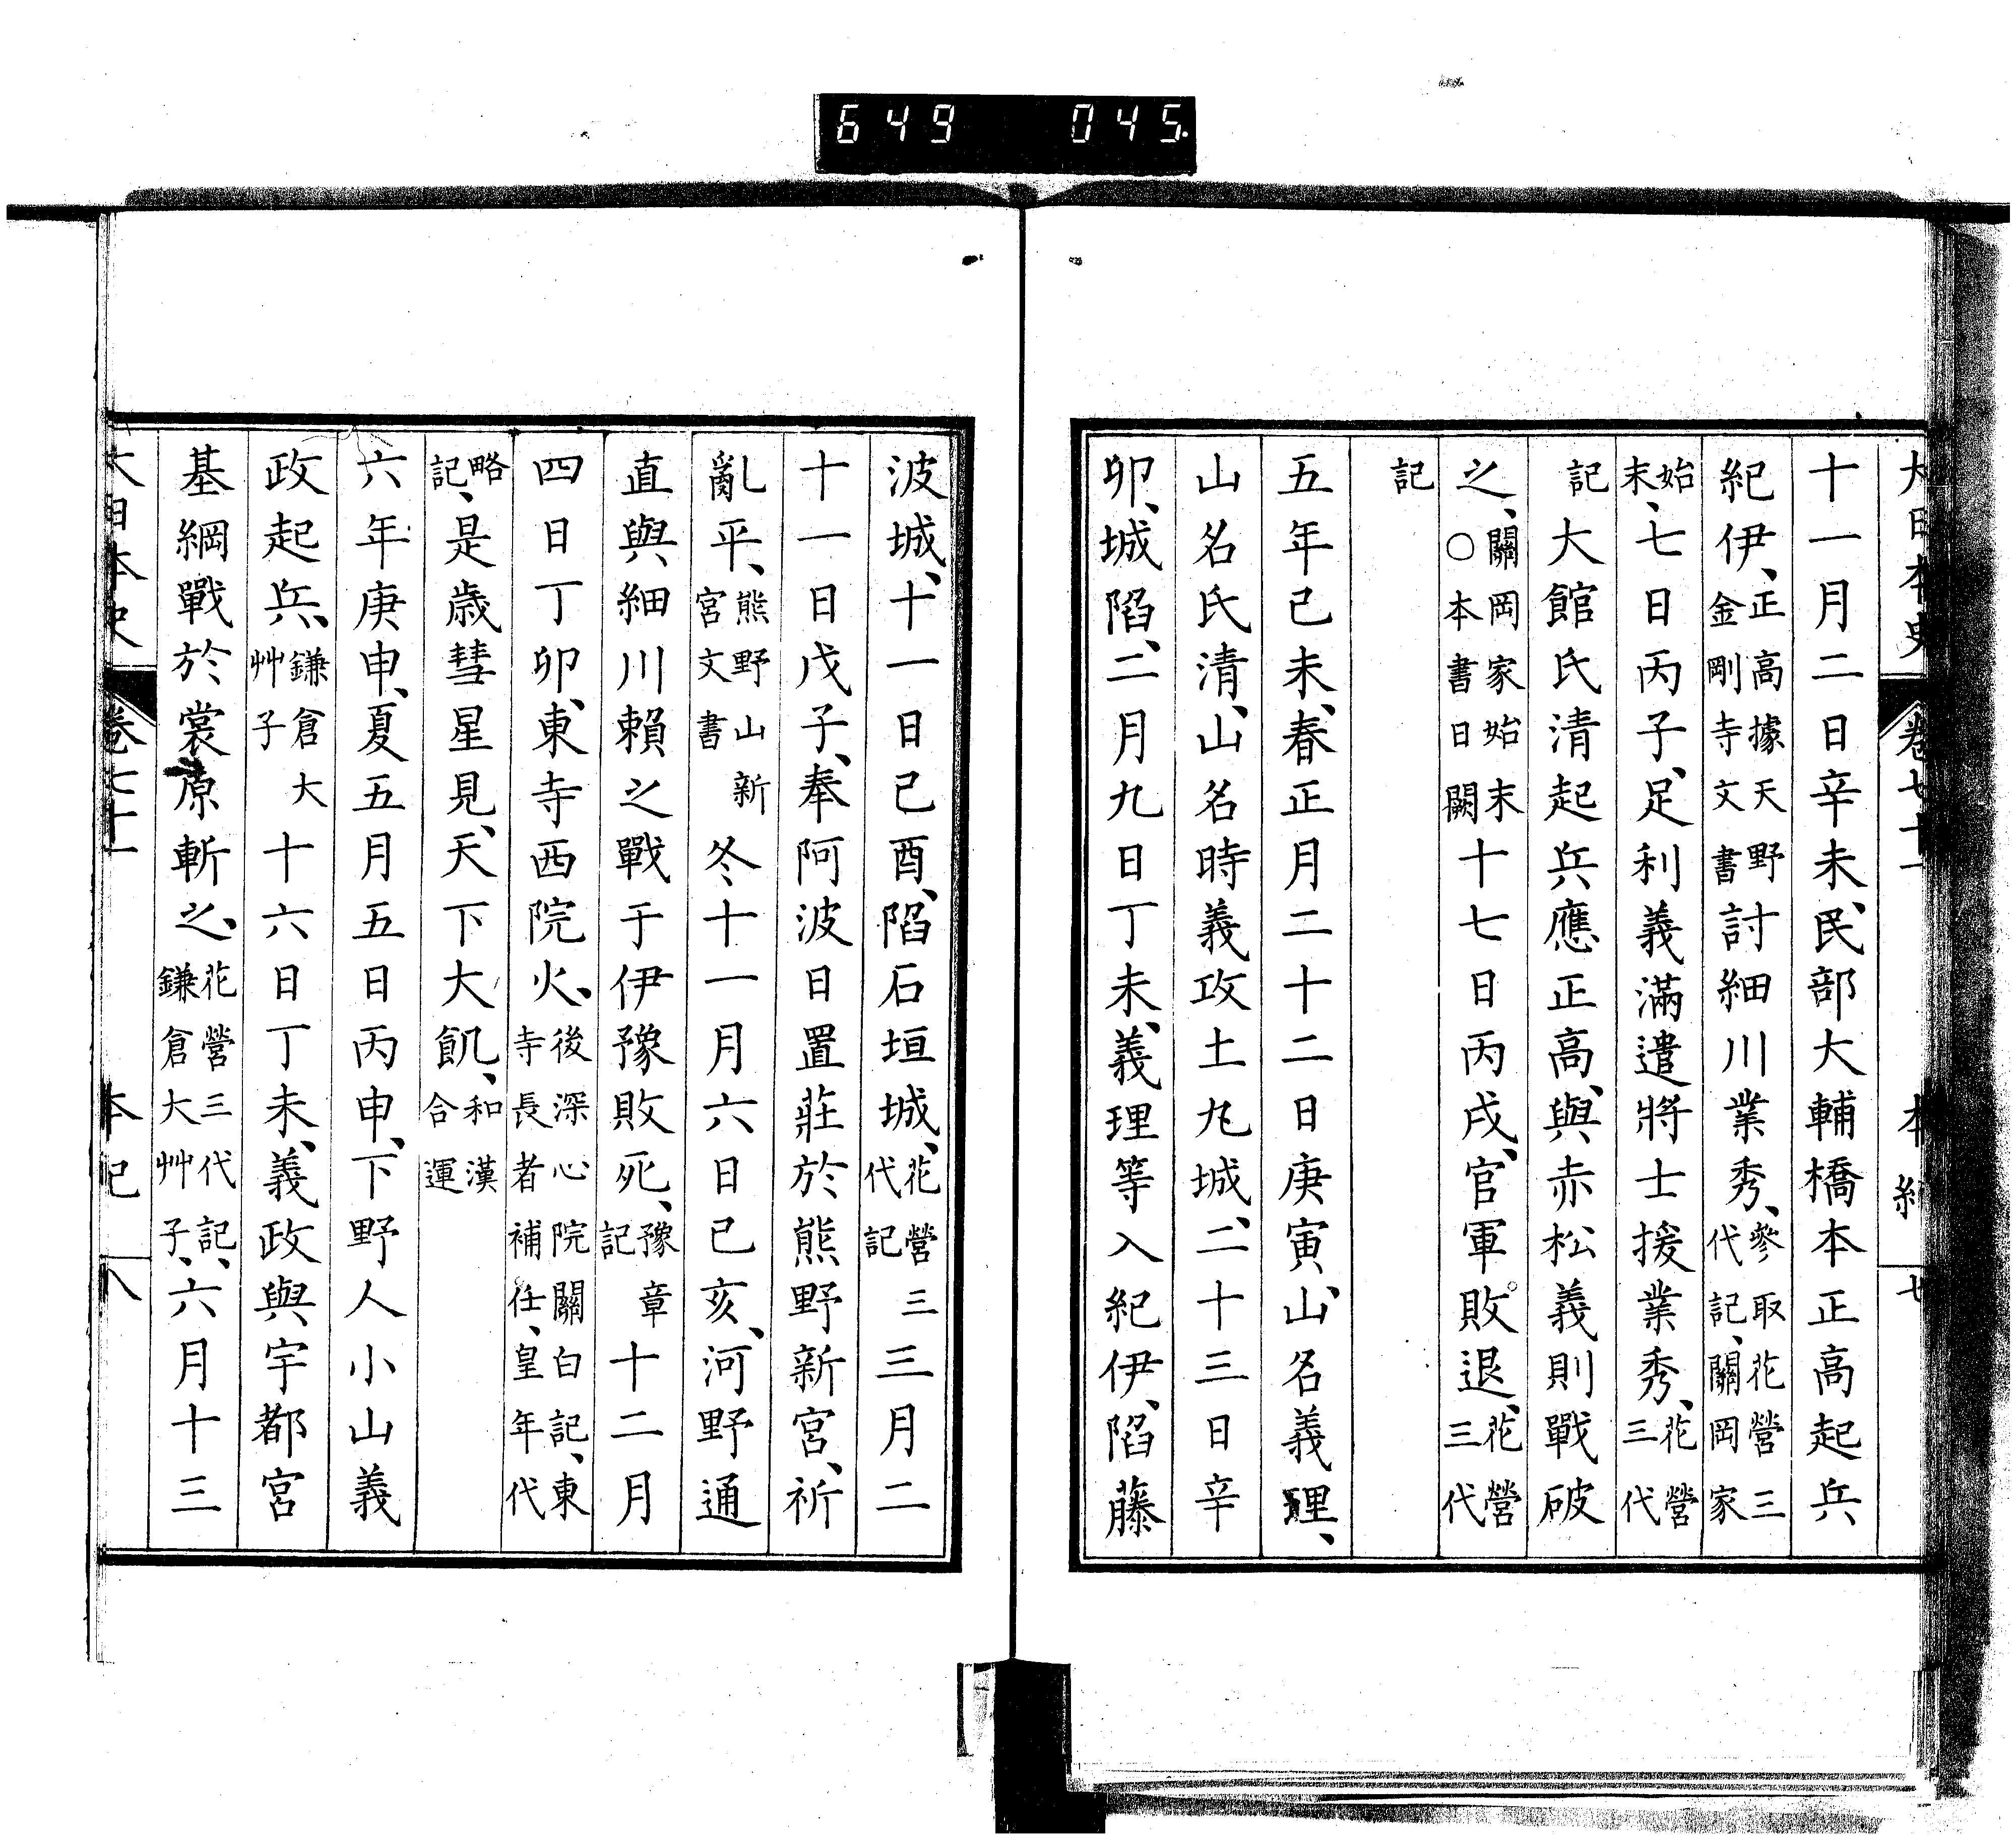 649 045
大日本史 卷七十一 本紀 七
十一月二日辛未、民部大輔橋本正高起兵
紀伊、正高據天野金剛寺文書討細川業秀、參取花營三代記、關岡家
始末、七日丙子、足利義滿遣將士援業秀、花營三代
記大館氏清起兵應正高、與赤松義則戰破
之、關岡家始末○本書日闕十七日丙戌、官軍敗退、花營三代
記
五年己未、春正月二十二日庚寅、山名義理、
山名氏清、山名時義攻土丸城、二十三日辛
卯、城陷、二月九日丁未、義理等入紀伊、陷藤
波城、十一日己酉、陷石垣城、花營三代記三月二
十一日戊子、奉阿波日置莊於熊野新宮、祈
亂平、熊野山新宮文書冬十一月六日己亥、河野通
直與細川賴之戰于伊豫敗死、豫章記十二月
四日丁卯、東寺西院火、後深心院關白記、東寺長者補任、皇年代
略記、是歲彗星見、天下大飢、和漢合運
六年庚申、夏五月五日丙申、下野人小山義
政起兵、鎌倉大艸子十六日丁未、義政與宇都宮
基綱戰於裳原斬之、花營三代記、鎌倉大艸子、六月十三
大日本史 卷七十一 本紀 八